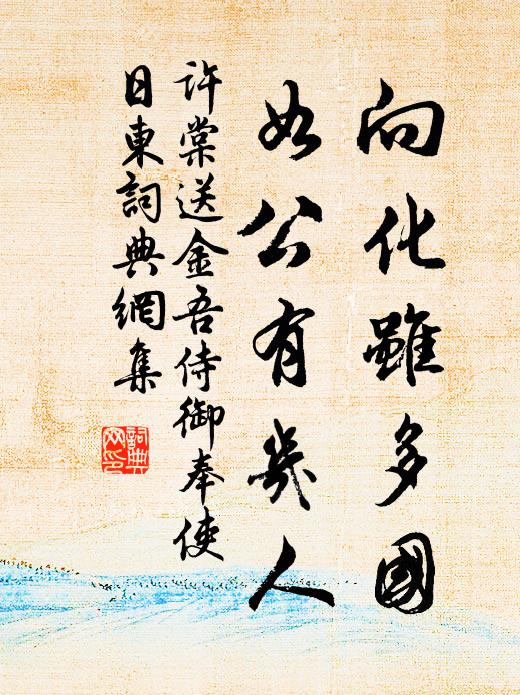 向化雖多國
如公有幾人
許棠送金吾侍御奉使
日東詞典網集
詞典網印